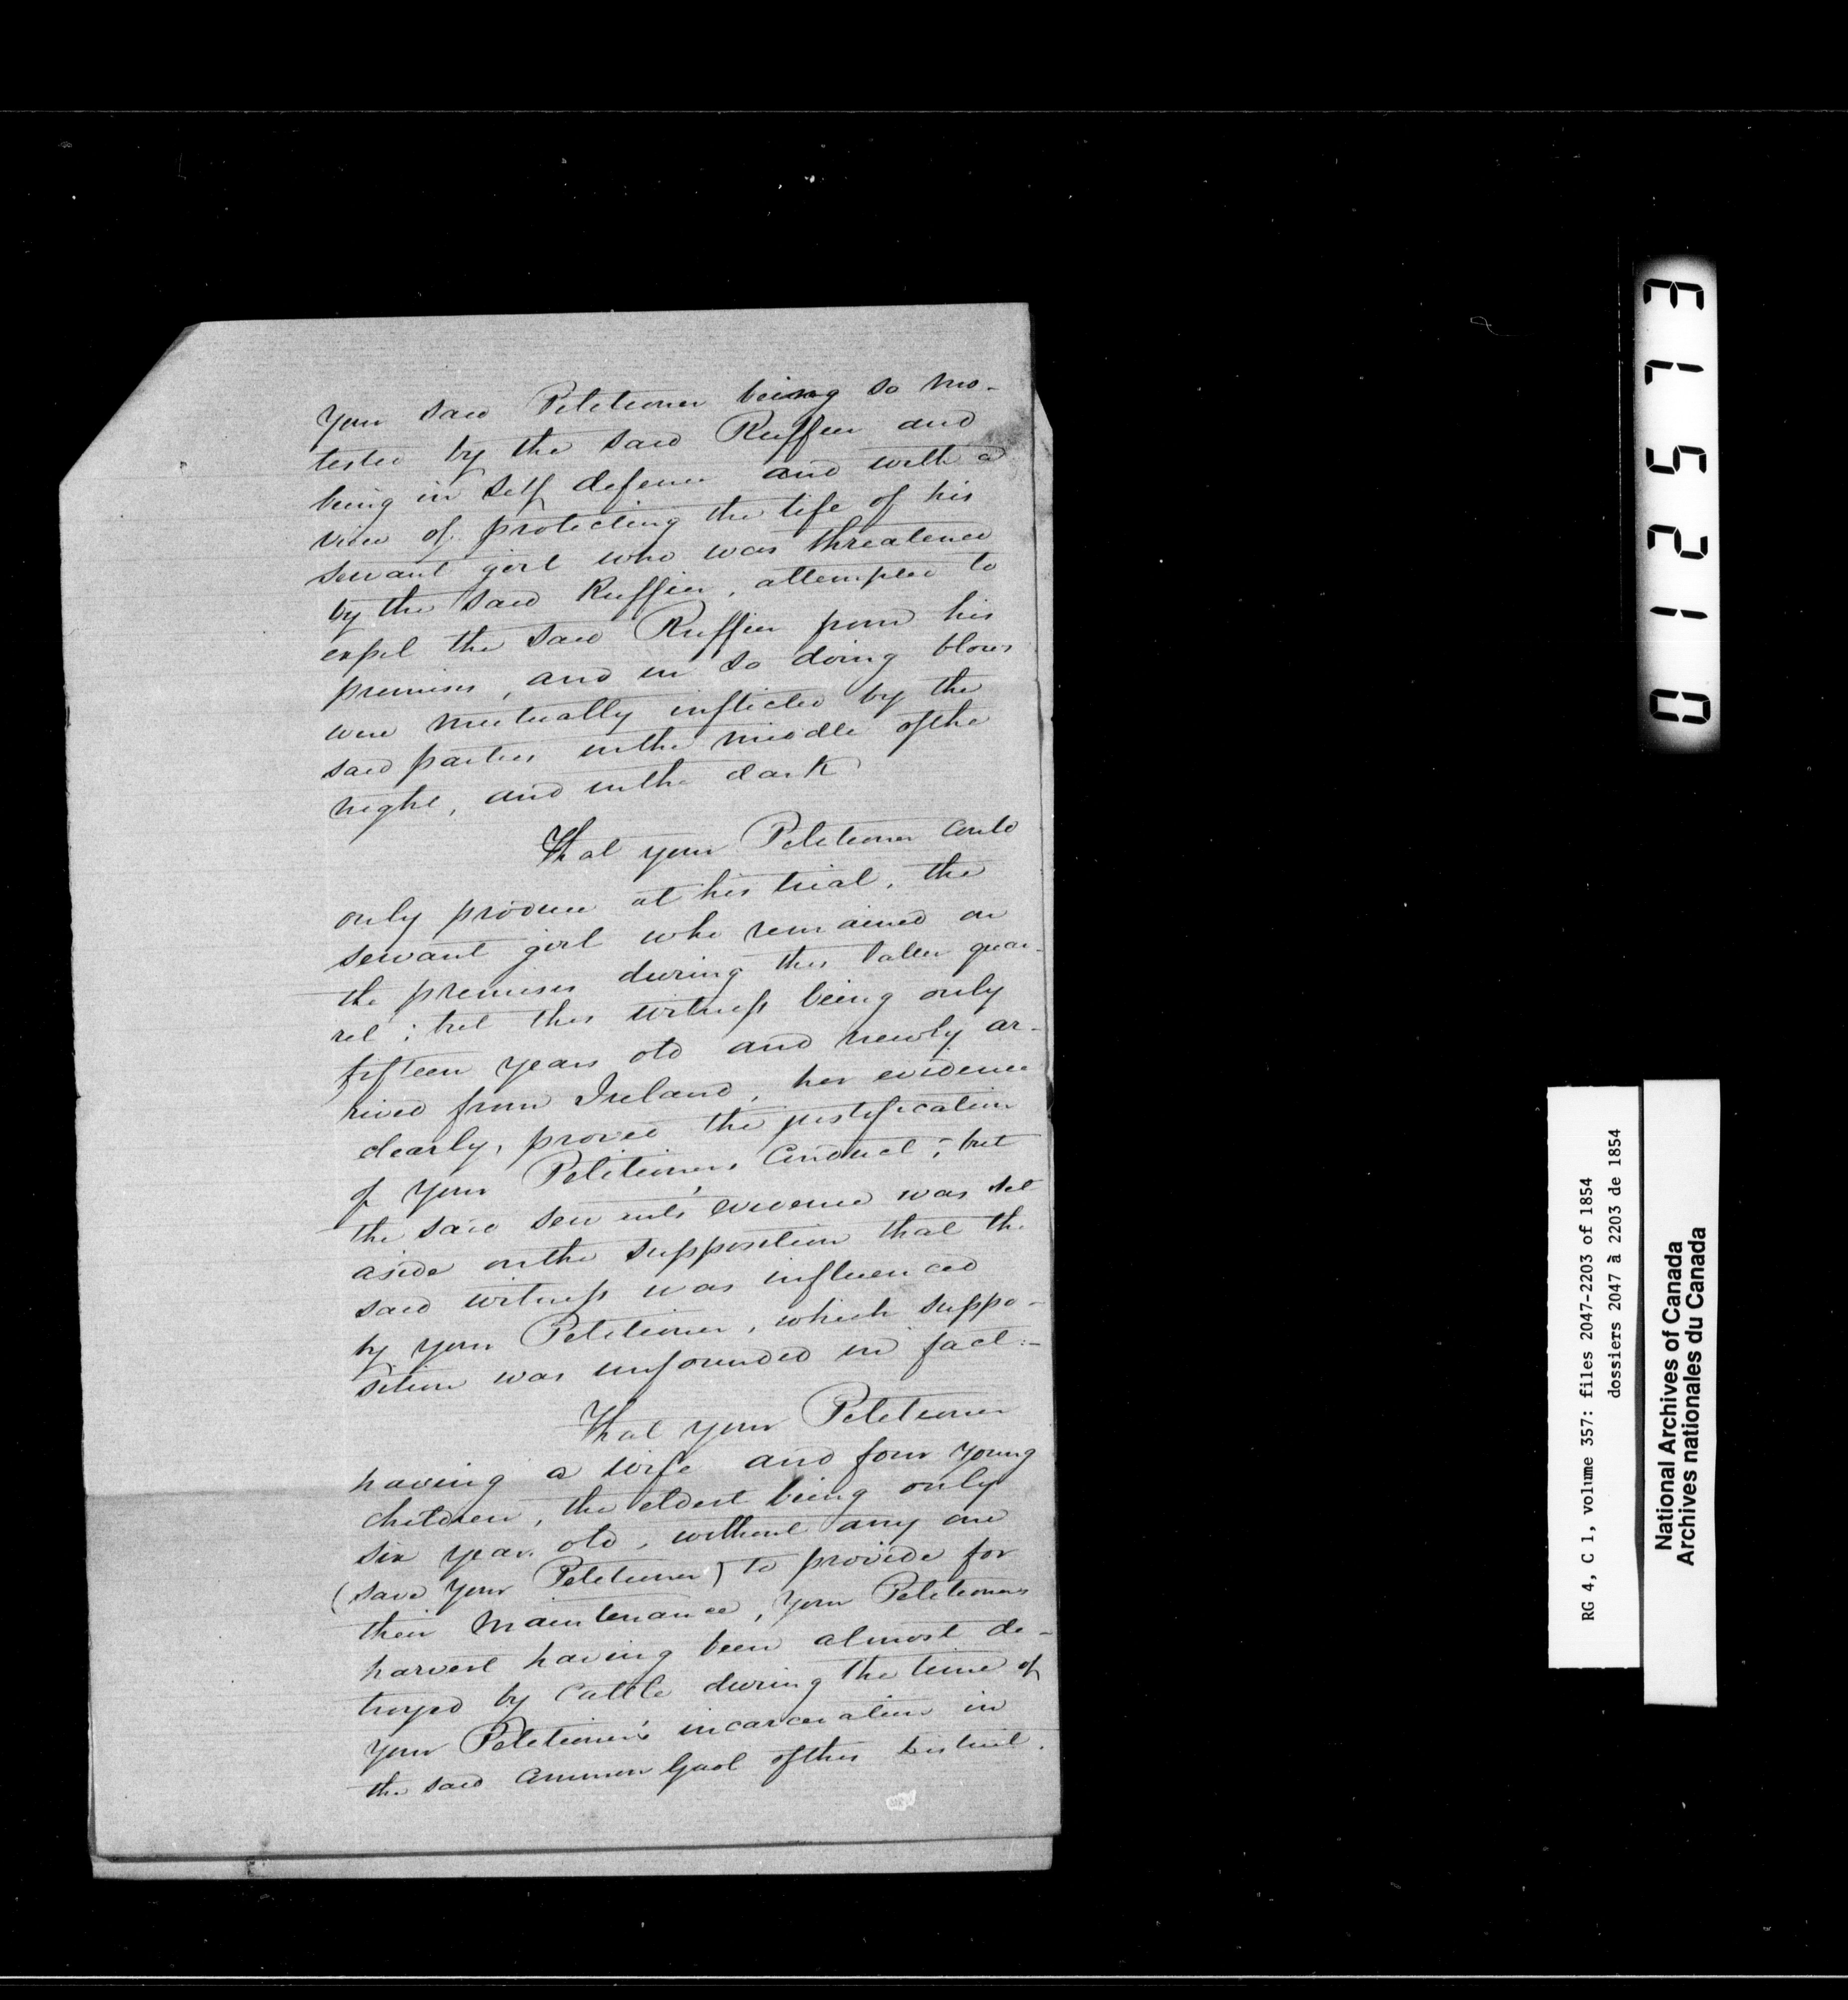 Your said Petitioner being so mo-
lested by the said Ruffien and
being in self defence and with a
view of protecting the life of his
servant girl who was threatened
by the said Ruffien, attempted to
expel the said Ruffien from his
premises, and in so doing blows
were mutually inflicted by the
said parties in the middle of the
night, and in the dark
That your Petitioner could
only produce at his trial, the
servant girl who remained on
the premises during this latter quar-
rel; but this witness being only
fifteen years old and newly ar-
rived from Ireland, her evidence
clearly, proved the justification
of your Petitioner's Conduct; but
the said servants' evidence was set
aside on the supposition that the
said witness was influenced
by your Petitioner, which suppo-
sition was unfounded in fact:-
That your Petitioner
having a wife and four young
children, the eldest being only
six years old, without any one
(save your Petitioner) to provide for
their Maintenance, your Petitioners
harvest having been almost de-
troyed by Cattle during the time of
your Petitioner's incarceration in
the said Common Gaol of this District.
012573
RG 4, C 1, volume 357: files 2047-2203 of 1854
dossiers 2047 à 2203 de 1854
National Archives of Canada
Archives nationales du Canada